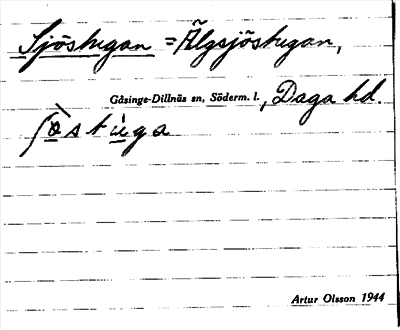 Sjöstugan = Älgsjöstugan,
Gåsinge-Dillnäs sn, Söderm. l., Daga hd.
ʃö̀stùga
Artur Olsson 1944